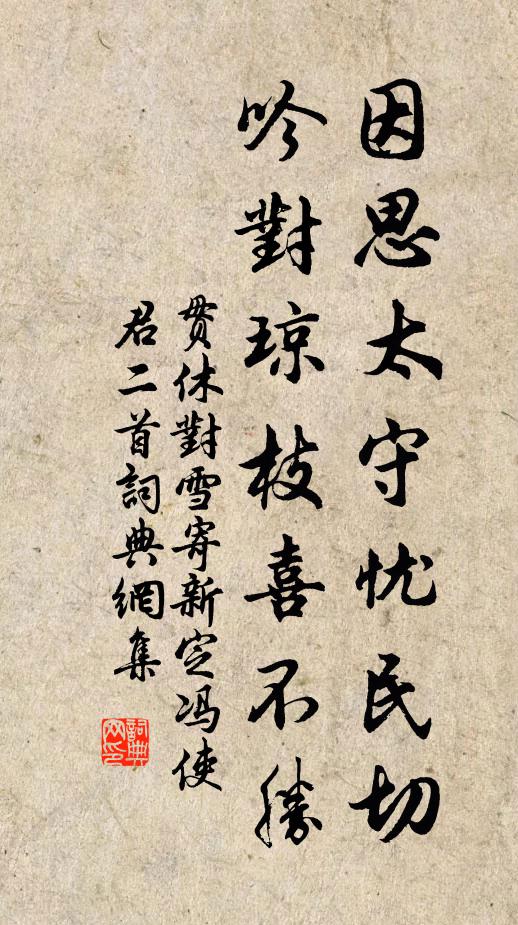 因思太守忧民切
吟對琼枝喜不勝
贯休對雪寄新定冯使
君二首詞典網集
詞典
网印